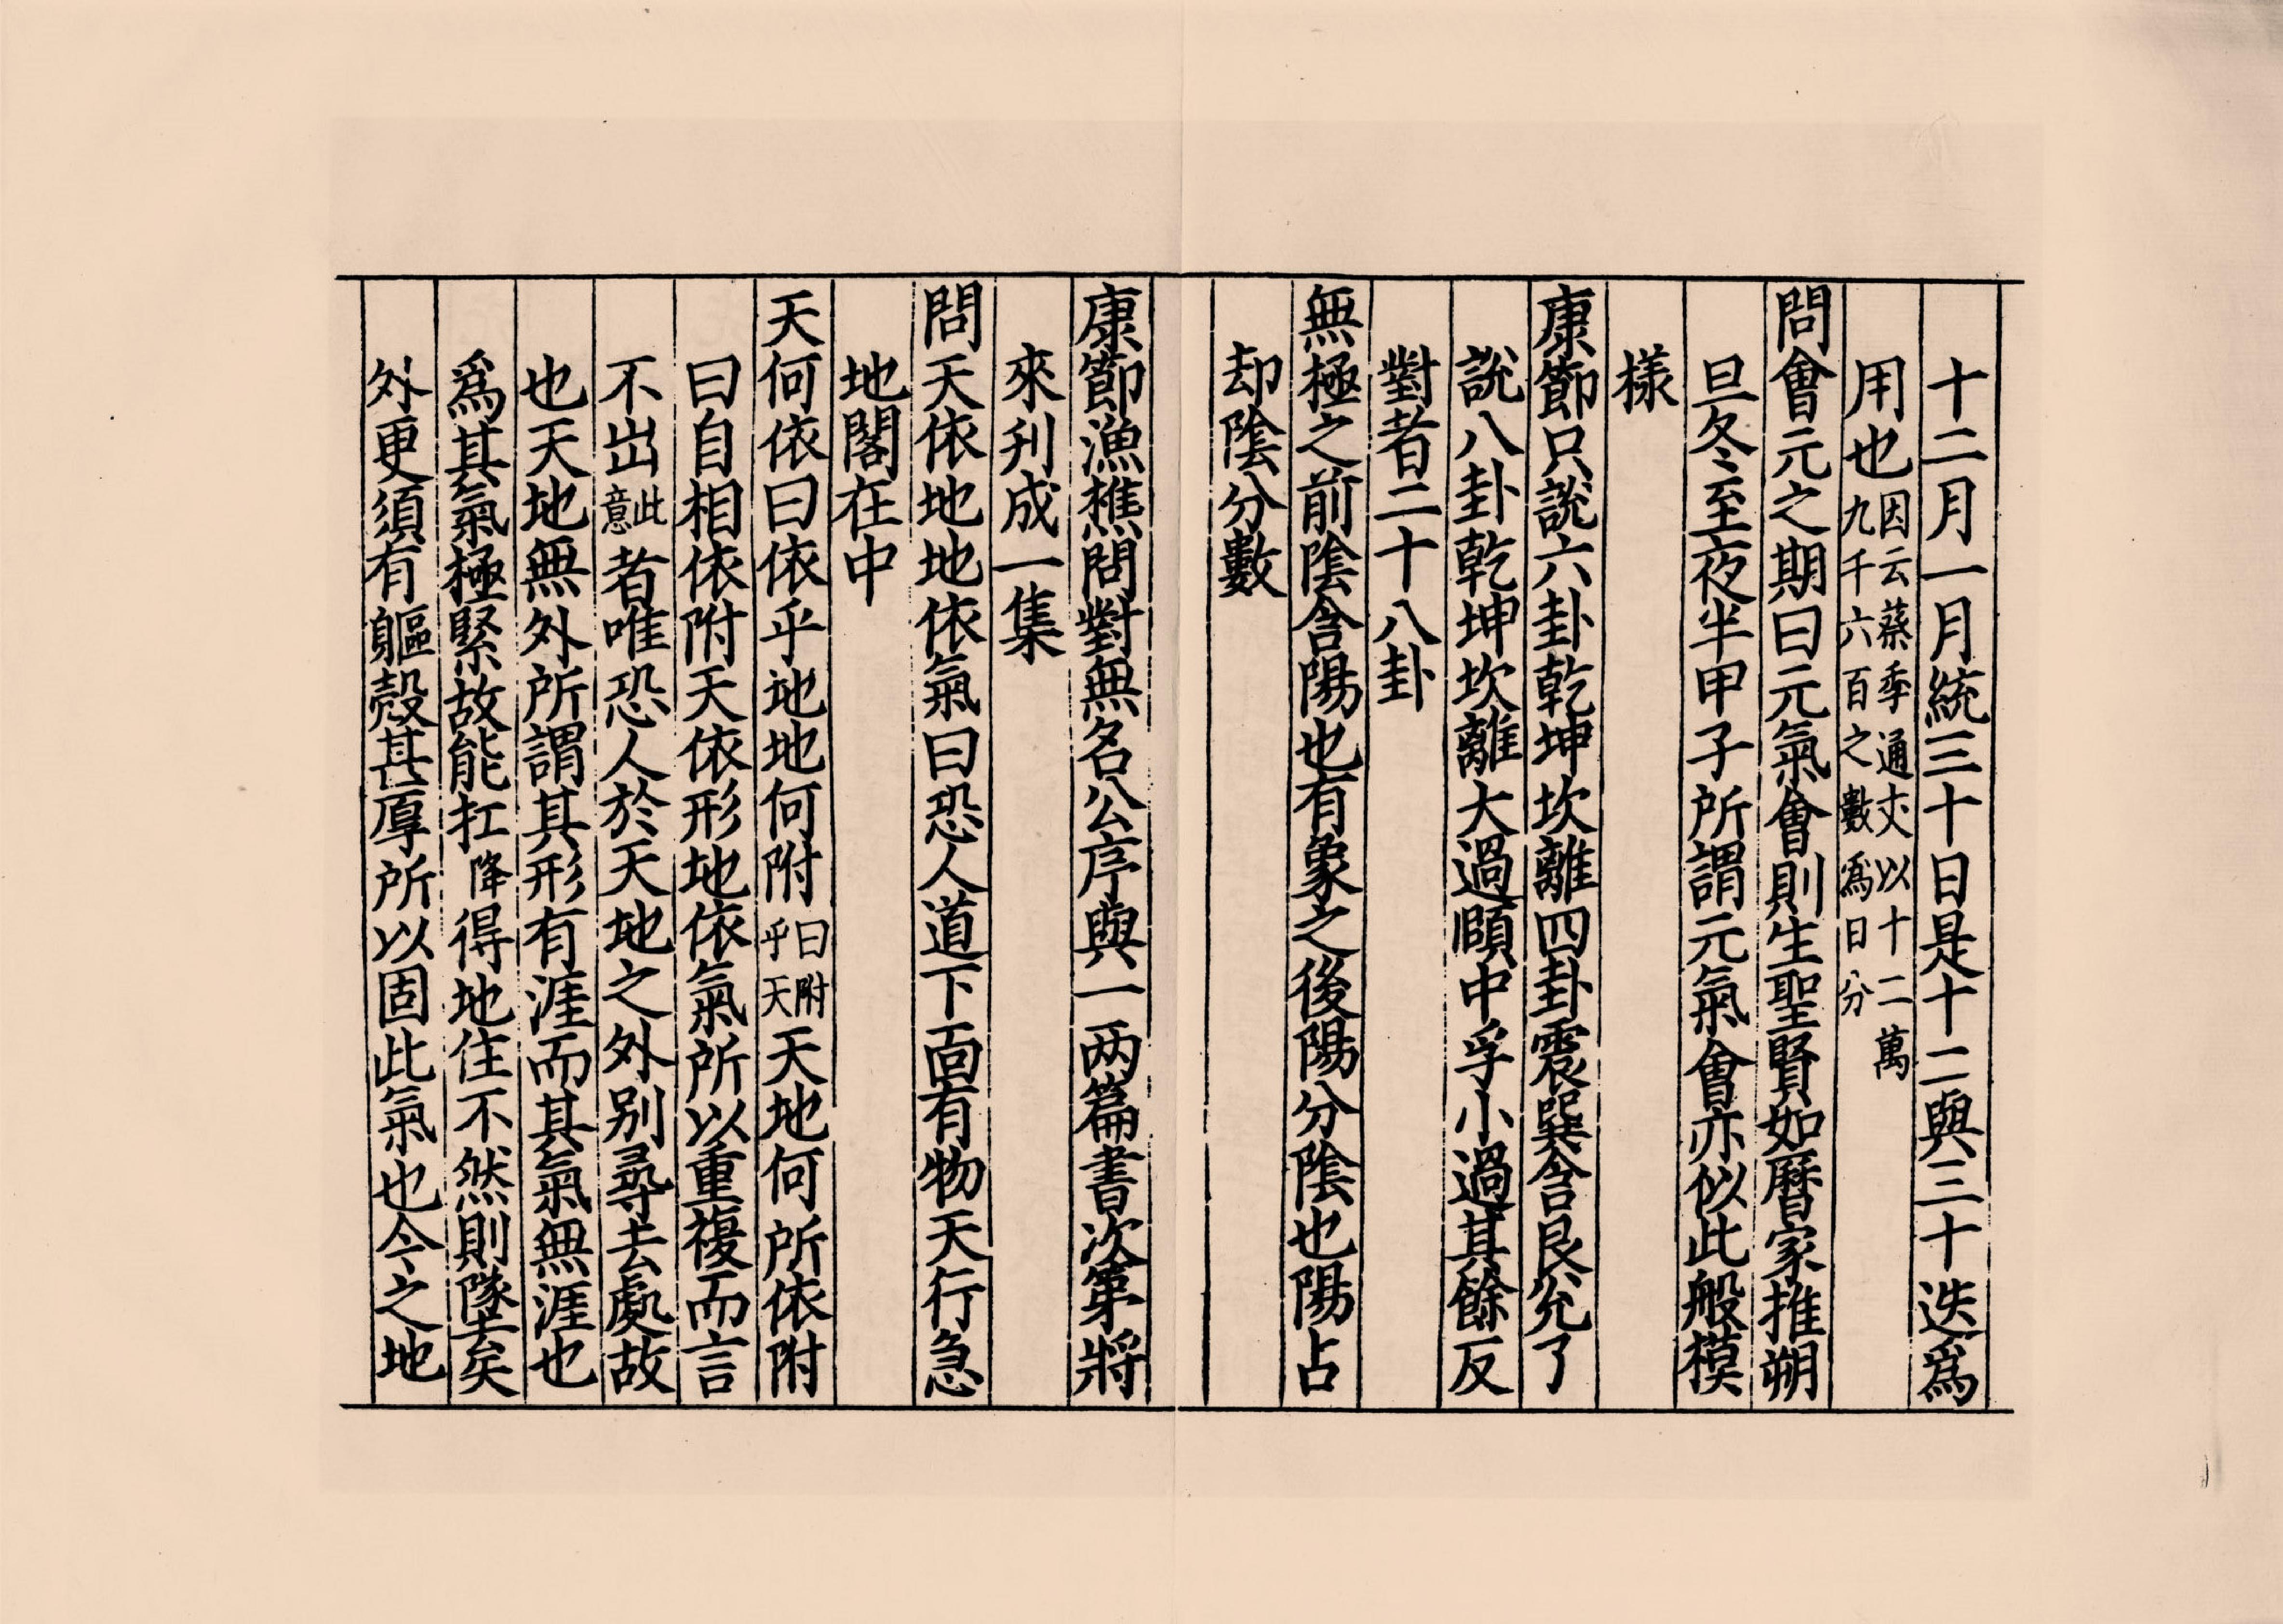 十二月一月統三十日是十二與三十迭爲
用也因云蔡季通丈以十二萬九千六百之數爲日分
問會元之期曰元氣會則生聖賢如曆家推朔
旦冬至夜半甲子所謂元氣會亦似此般模
樣
康節只說六卦乾坤坎離四卦震巽含艮兊了
說八卦乾坤坎離大過頤中孚小過其餘反
對者二十八卦
無極之前隂含陽也有象之後陽分隂也陽占
却隂分數
康節漁樵問對無名公序與一两篇書次第將
來刋成一集
問天依地地依氣曰恐人道下面有物天行急
地閣在中
天何依曰依乎地地何附曰附乎天天地何所依附
曰自相依附天依形地依氣所以重複而言
不出此意者唯恐人於天地之外别尋去處故
也天地無外所謂其形有涯而其氣無涯也
爲其氣極緊故能扛降得地住不然則墜矣
外更須有軀殼甚厚所以固此氣也今之地